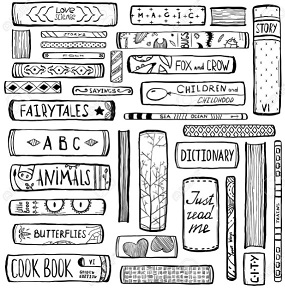 LOVE
SCIENCE
MAGIC
STORY
VI
FOX AND CROW
SAYINGS
CHILDREN and
CHILDHOOD
FAIRYTALES
SEA OCEAN
ABC
DICTIONARY
ANIMALS
Just
read
me
BUTTERFLIES
COOK BOOK
VI
CITY